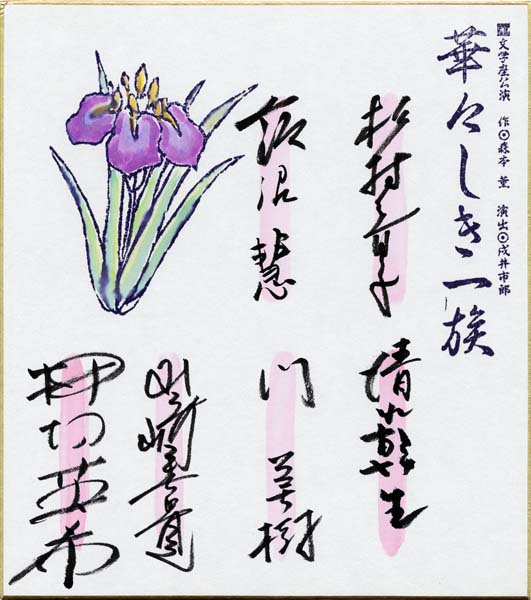 文学座公演 作◎森本薫 演出◎戌井市郎
華々しき一族
杉村春子
飯沼慧
清水幹生
門 英樹
山崎美貴
押切英希